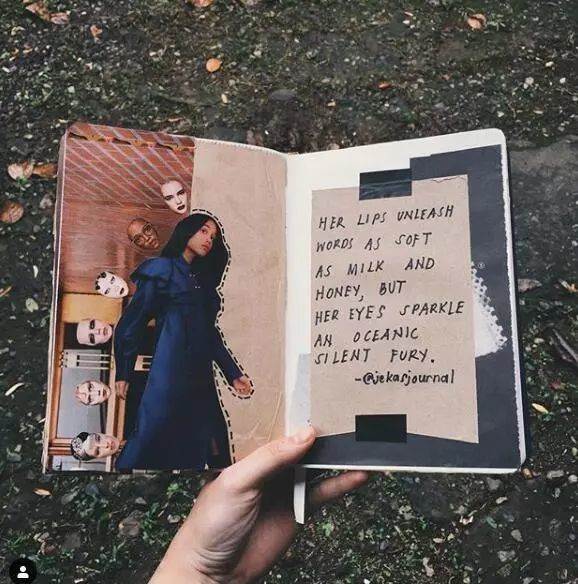 HER LIPS UNLEASH
WORDS AS SOFT
AS MILK AND
HONEY, BUT
HER EYES SPARKLE
AN OCEANIC
SILENT FURY.
-@jekasjournal